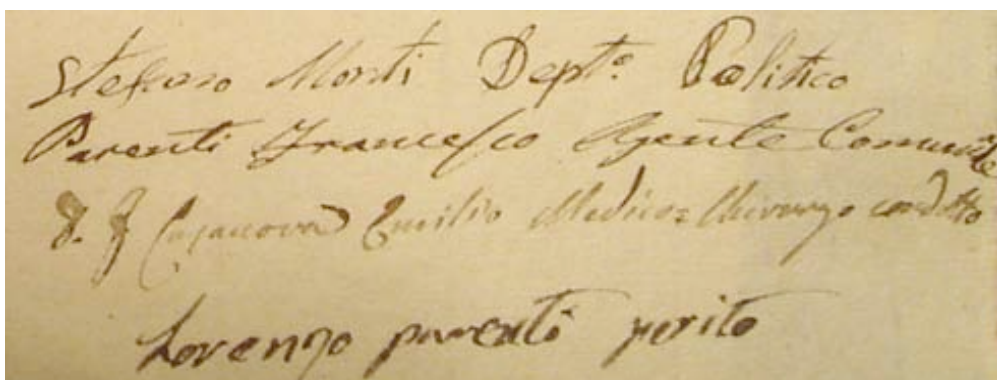 Stefano Monti Dept.º Politico
Parenti Francesco Agente Comunale
Casanova Emilio Medico=Chirurgo condotto
Lorenzo parenti perito